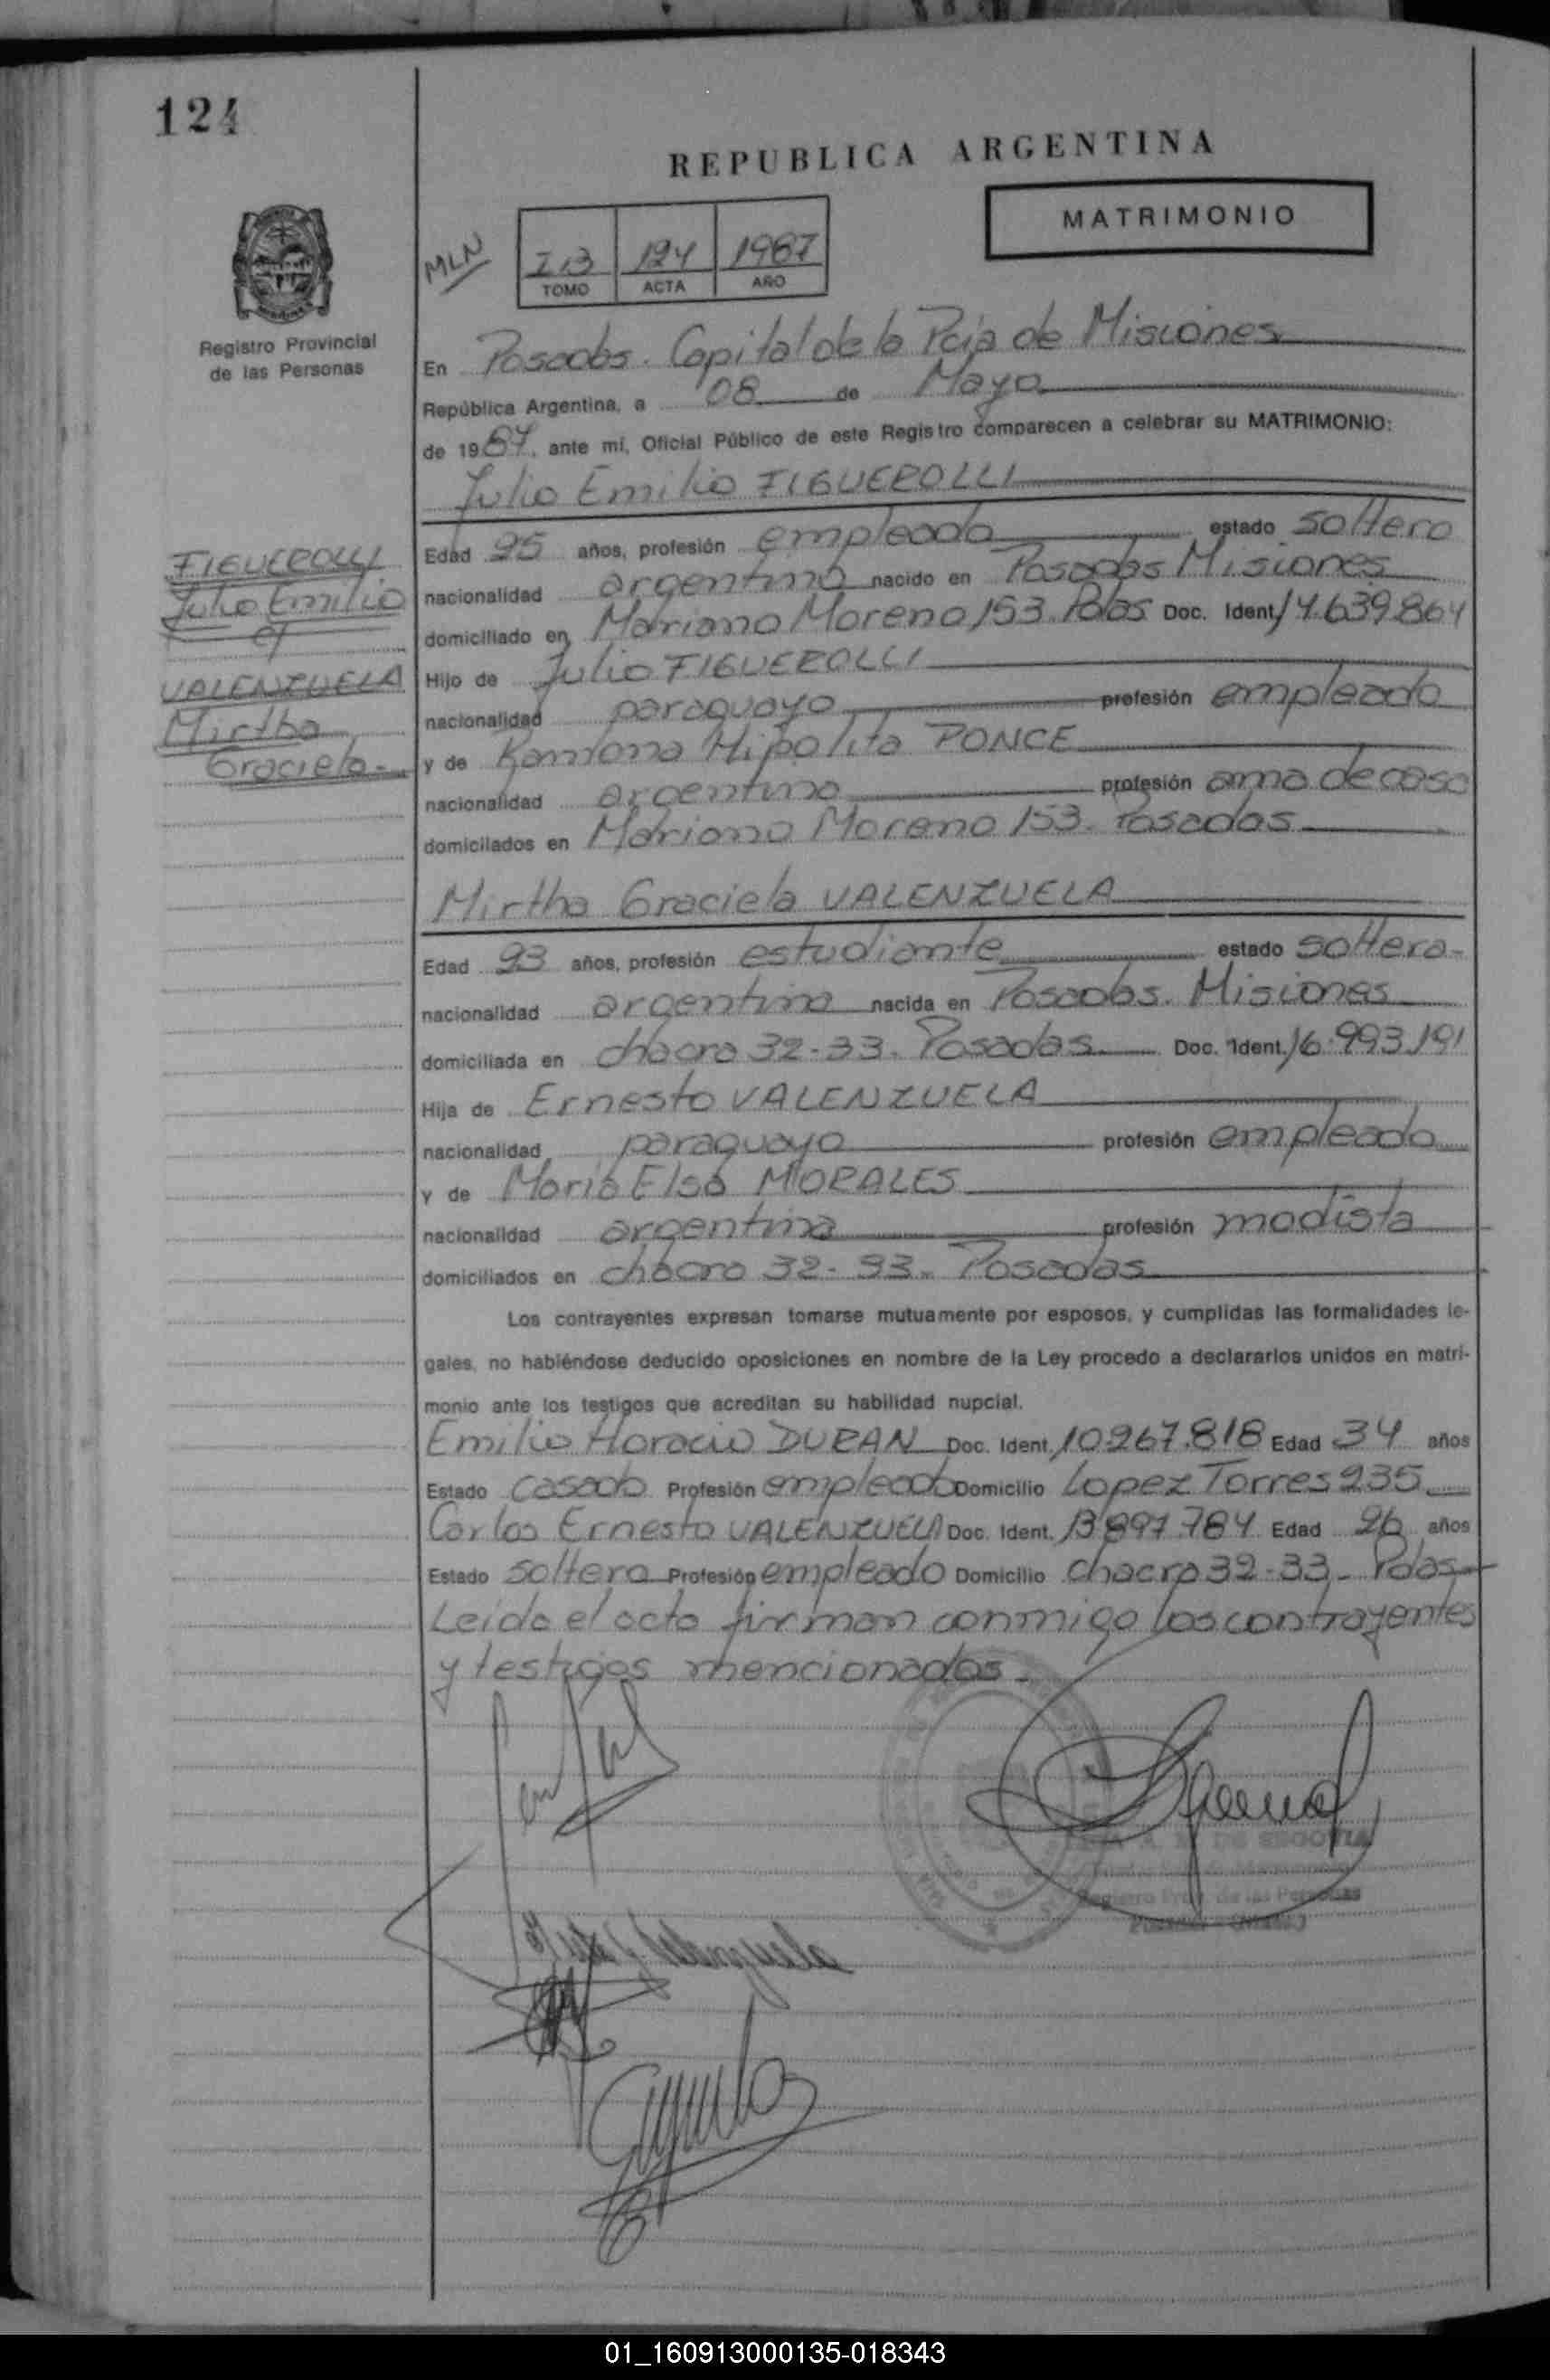 124
REPUBLICA ARGENTINA
MATRIMONIO
MLN
I 13 124 1987
TOMO ACTA AÑO
Registro Provincial
de las Personas
En Posadas. Capital de la Pcia de Misiones
República Argentina, a 08 de Mayo
de 1987, ante mí, Oficial Público de este Registro comparecen a celebrar su MATRIMONIO:
Julio Emilio FIGUEROLLI
Edad 25 años, profesión empleado estado soltero
nacionalidad argentino nacido en Posadas Misiones
domiciliado en Mariano Moreno 153. Pdas Doc. Ident. 14.639.864
Hijo de Julio FIGUEROLLI
nacionalidad paraguayo profesión empleado
y de Ramona Hipolita PONCE
nacionalidad argentina profesión ama de casa
domiciliados en Mariano Moreno 153. Posadas
FIGUEROLLI
Julio Emilio
c/
VALENZUELA
Mirtha
Graciela.-
Mirtha Graciela VALENZUELA
Edad 23 años, profesión estudiante estado soltera-
nacionalidad argentina nacida en Posadas. Misiones
domiciliada en chacra 32-33. Posadas Doc. Ident. 16.993.191
Hija de Ernesto VALENZUELA
nacionalidad paraguayo profesión empleado
y de Maria Elsa MORALES
nacionalidad argentina profesión modista
domiciliados en chacra 32-33. Posadas
Los contrayentes expresan tomarse mutuamente por esposos, y cumplidas las formalidades le-
gales, no habiéndose deducido oposiciones en nombre de la Ley procedo a declararlos unidos en matri-
monio ante los testigos que acreditan su habilidad nupcial.
Emilio Horacio DURAN Doc. Ident. 10.267.818 Edad 34 años
Estado casado Profesión empleado Domicilio Lopez Torres 235
Carlos Ernesto VALENZUELA Doc. Ident. 13.897.784 Edad 26 años
Estado soltero Profesión empleado Domicilio chacra 32-33- Pdas
Leida el acta firman conmigo los contrayentes
y testigos mencionados.
DE SEGOVIA
Registro Prov. de las Personas
01_160913000135-018343